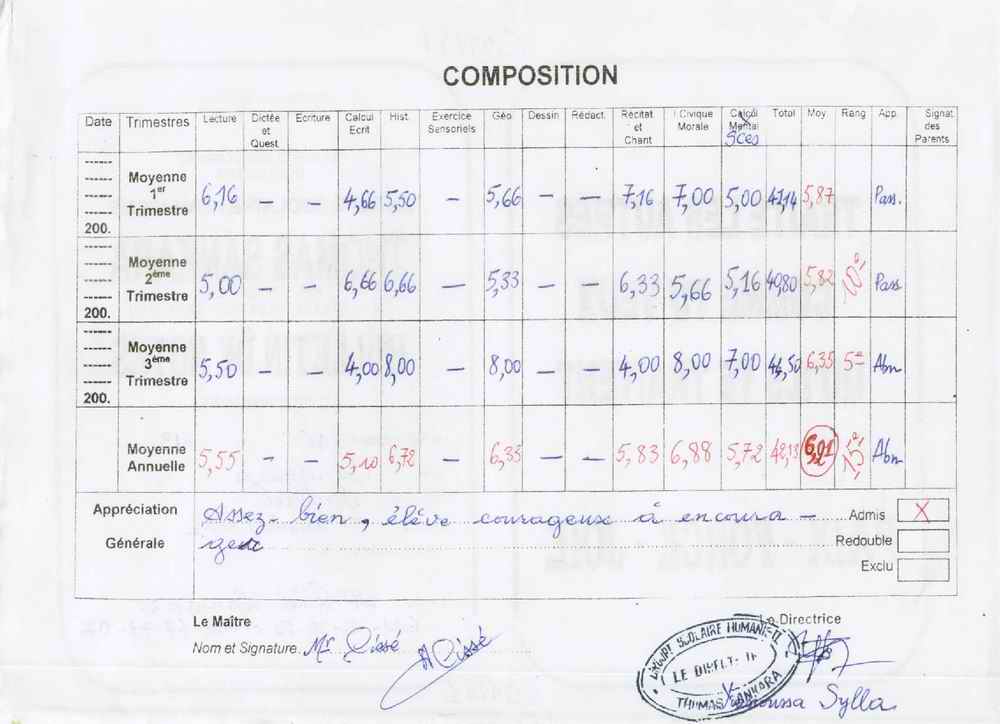 COMPOSITION
Date Trimestres Lecture Dictée et Quest Ecriture Calcul Ecrit Hist. Exercice Sensoriels Géo. Dessin Rédact. Récitat et Chant I.Civique Morale Calcul Mental Sces Total Moy. Rang App. Signat des Parents
200. Moyenne 1er Trimestre 6,16 – – 4,66 5,50 – 5,66 – – 7,16 7,00 5,00 41,14 5,87 Pass.
200. Moyenne 2ème Trimestre 5,00 – – 6,66 6,66 – 5,33 – – 6,33 5,66 5,16 40,80 5,82 Pass
200. Moyenne 3ème Trimestre 5,50 – – 4,00 8,00 – 8,00 – – 4,00 8,00 7,00 44,50 6,35 5e Abn
Moyenne Annuelle 5,55 – – 5,10 6,72 – 6,33 – – 5,83 6,88 5,72 42,13 Abn
Appréciation Générale
Assez-bien, élève courageux à encoura –
ger
Admis X
Redouble
Exclu
Le Maître
Nom et Signature. Mr Cissé
A Cissé
Le Directrice
GROUPE SCOLAIRE HUMANITE
LE DIRECTEUR
THOMAS SANKARA
Moussa Sylla